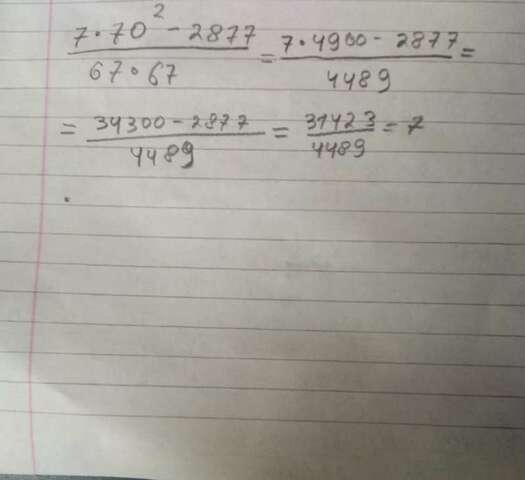 7·70² - 2877 / 67·67 = 7·4900 - 2877 / 4489 =
= 34300 - 2877 / 4489 = 31423 / 4489 = 7